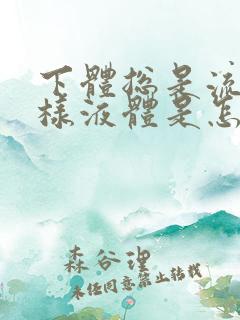 下體總是流
樣液體是怎
森谷理
未经同意禁止转载